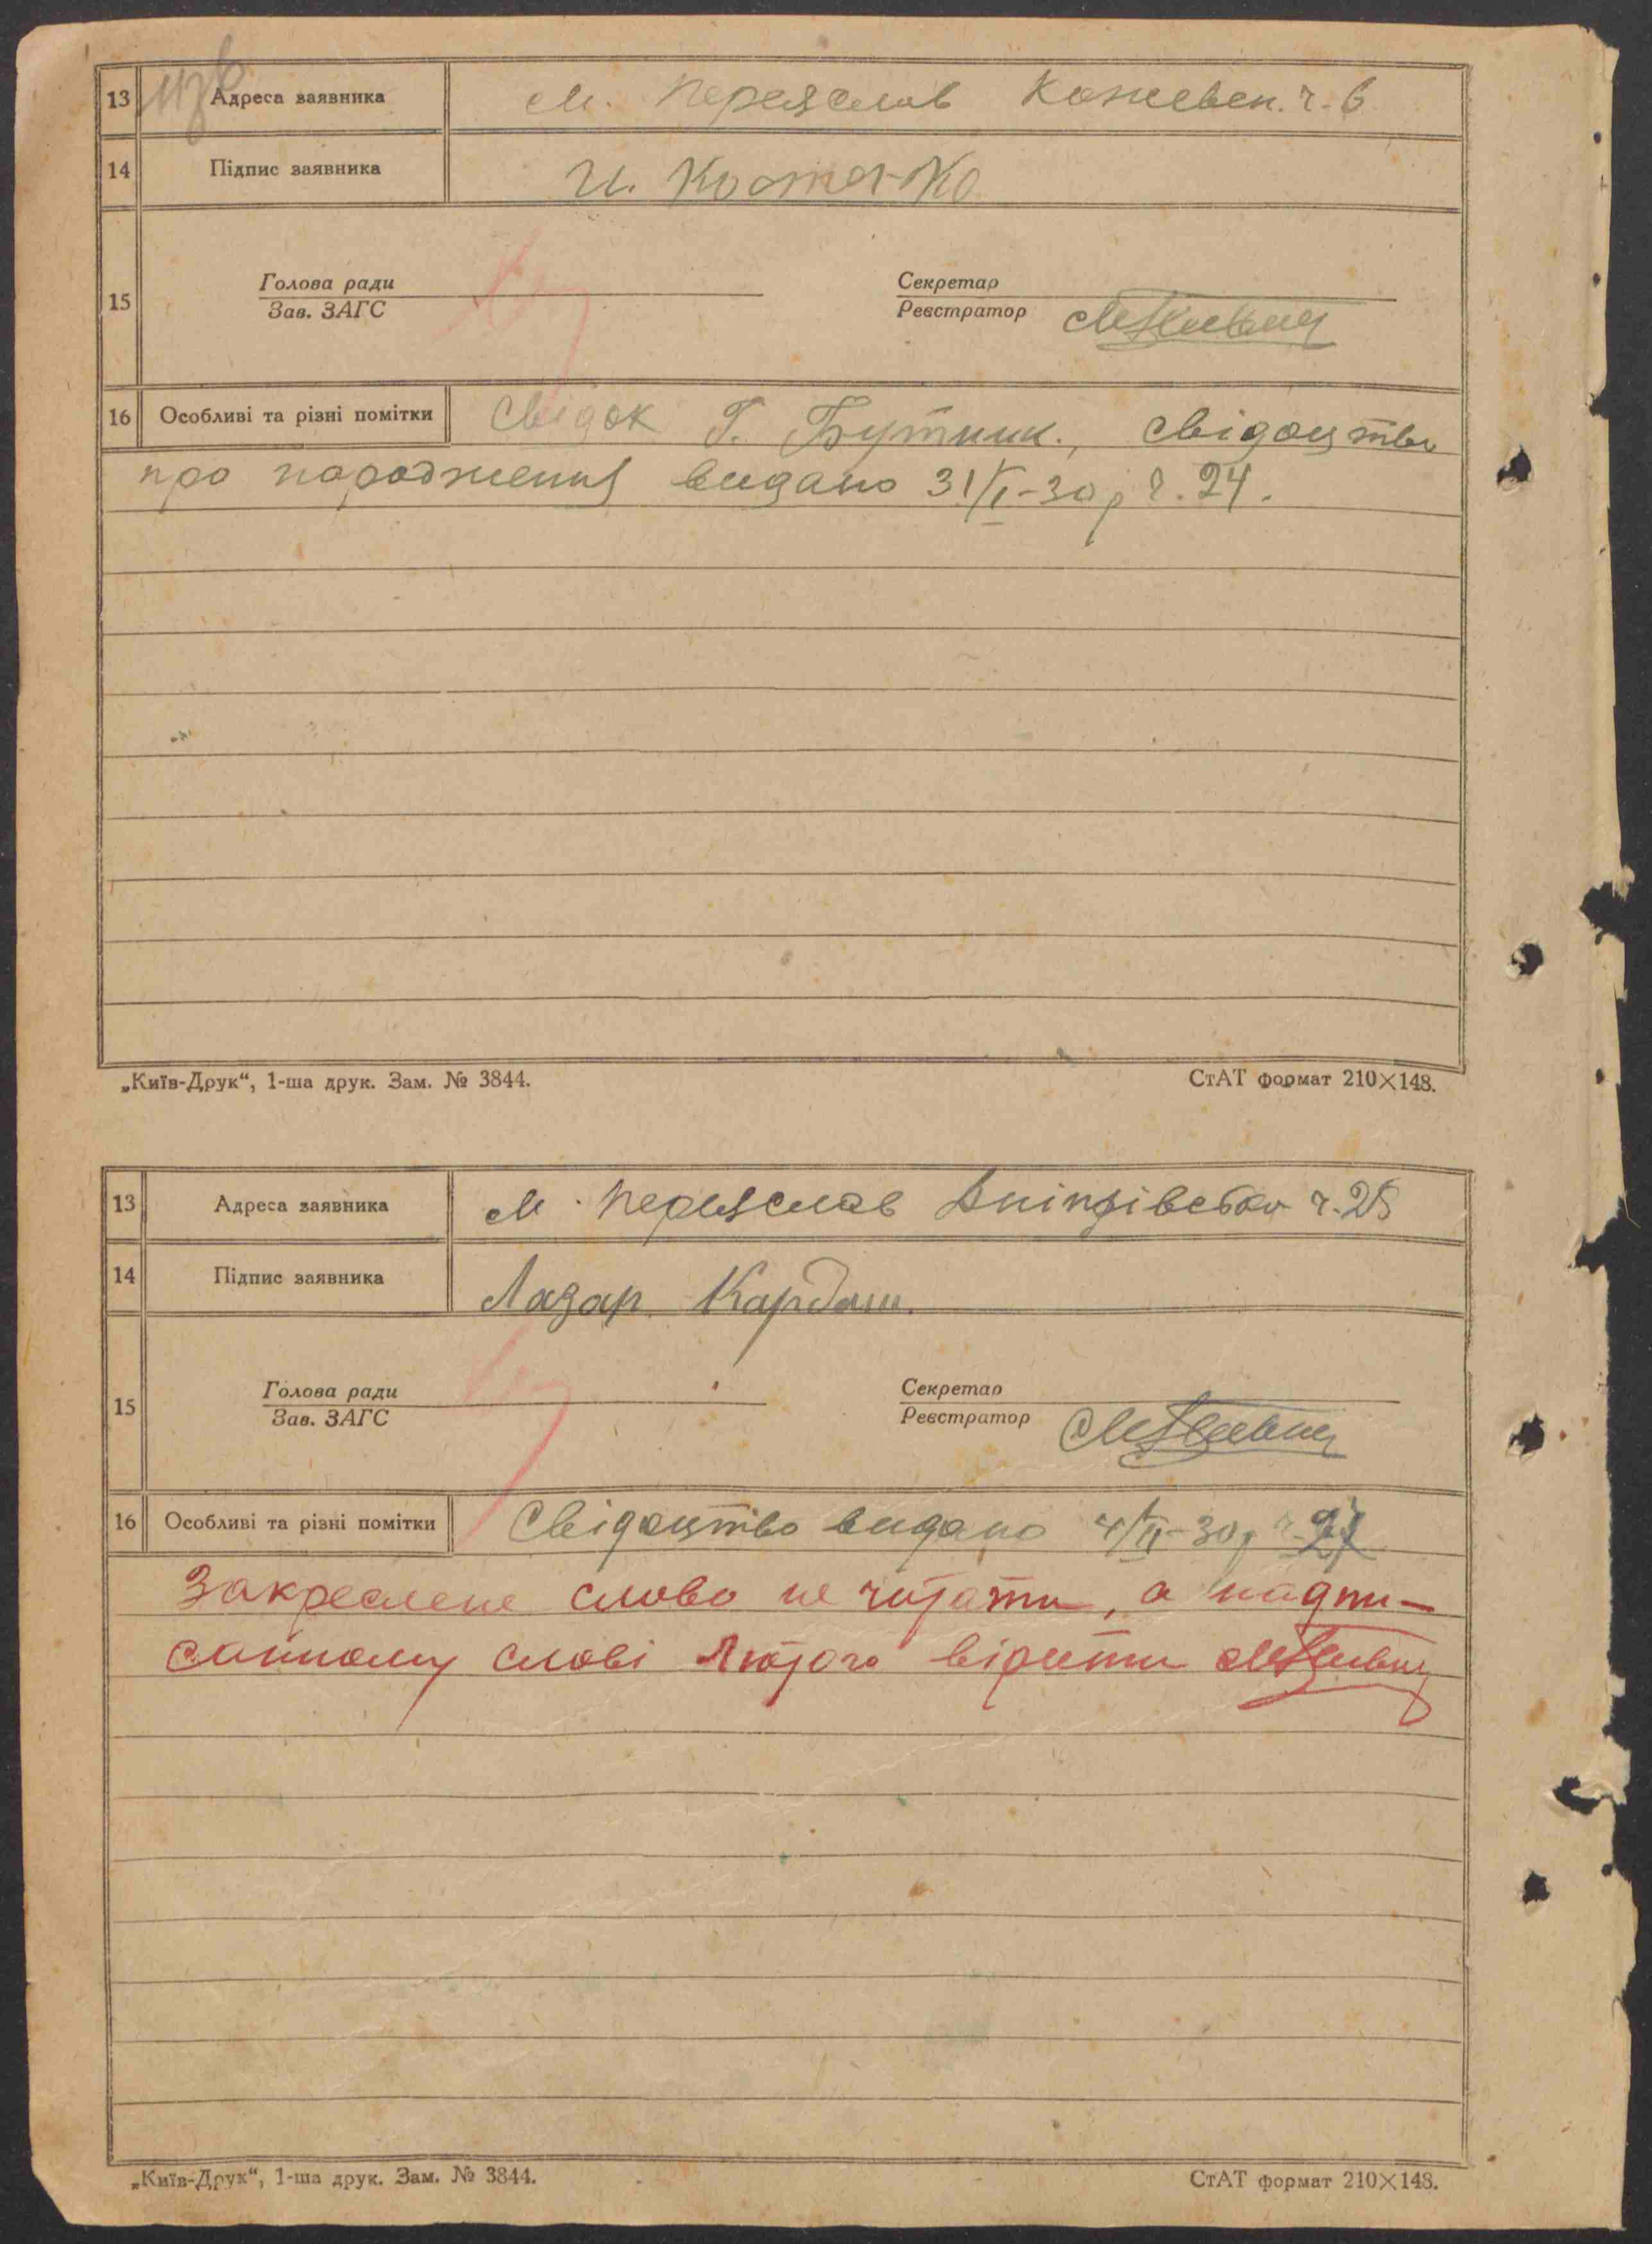 13 Адреса заявника м. Переяслав Кожевен. ч. 6
14 Підпис заявника И. Костенко
15 Голова ради Секретар
Зав. ЗАГС Реєстратор
16 Особливі та різні помітки Свідок Г. Бутник., свідоцтво
про народження видано 31/I-30 р ч. 24.
„Київ-Друк“, 1-ша друк. Зам. № 3844. СтАТ формат 210×148.
13 Адреса заявника м. Переяслав ч. 25
14 Підпис заявника Лазар Кардаш.
15 Голова ради Секретар
Зав. ЗАГС Реєстратор
16 Особливі та різні помітки Свідоцтво видано 4/II-30 р ч. 27
Закреслене слово не читати, а надпи-
санному слові Лютого вірити
„Київ-Друк“, 1-ша друк. Зам. № 3844. СтАТ формат 210×148.